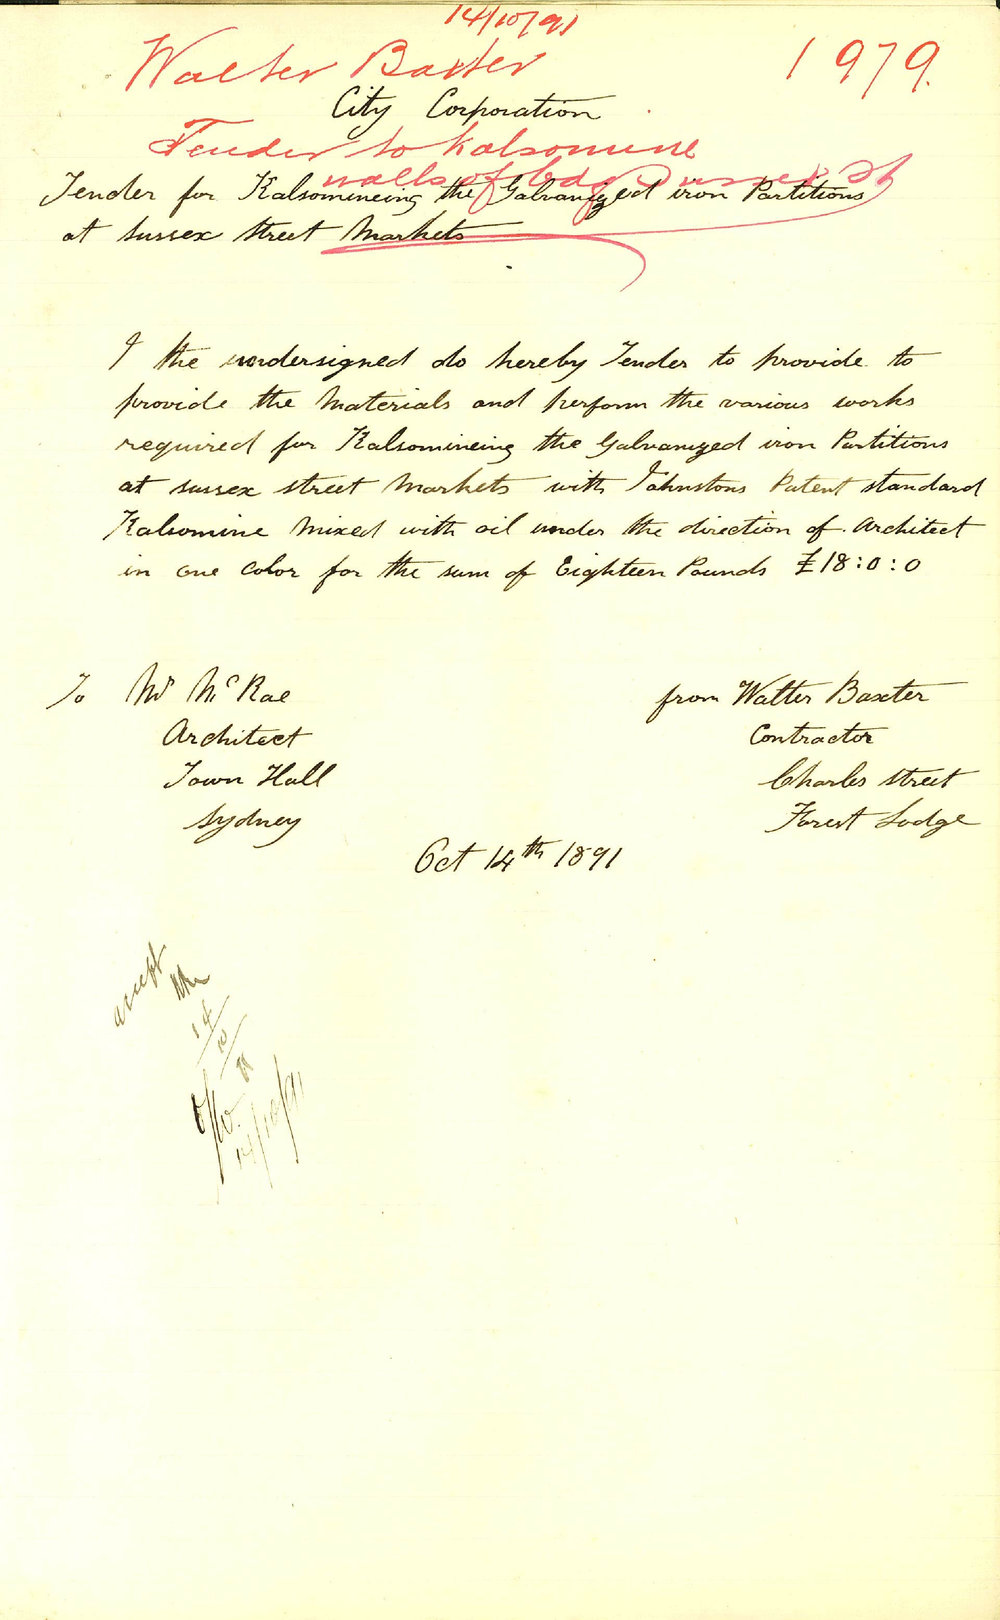 14/10/91
Walter Baxter 1979.
City Corporation
Tender to kalsomine
walls of bdg Sussex St
Tender for Kalsomineing the Galvanized iron Partitions
at sussex street Markets
I the undersigned do hereby Tender to provide to
provide the Materials and perform the various works
required for Kalsomineing the Galvanyzed iron Partitions
at sussex street Markets with Johnstons Patent standard
Kalsomine Mixed with oil under the direction of Architect
in one color for the sum of Eighteen Pounds £18:0:0
To Mr McRae
Architect
Town Hall
Sydney
from Walter Baxter
Contractor
Charles street
Forest Lodge
Oct 14th 1891
accept
14/10/91
14/10/91